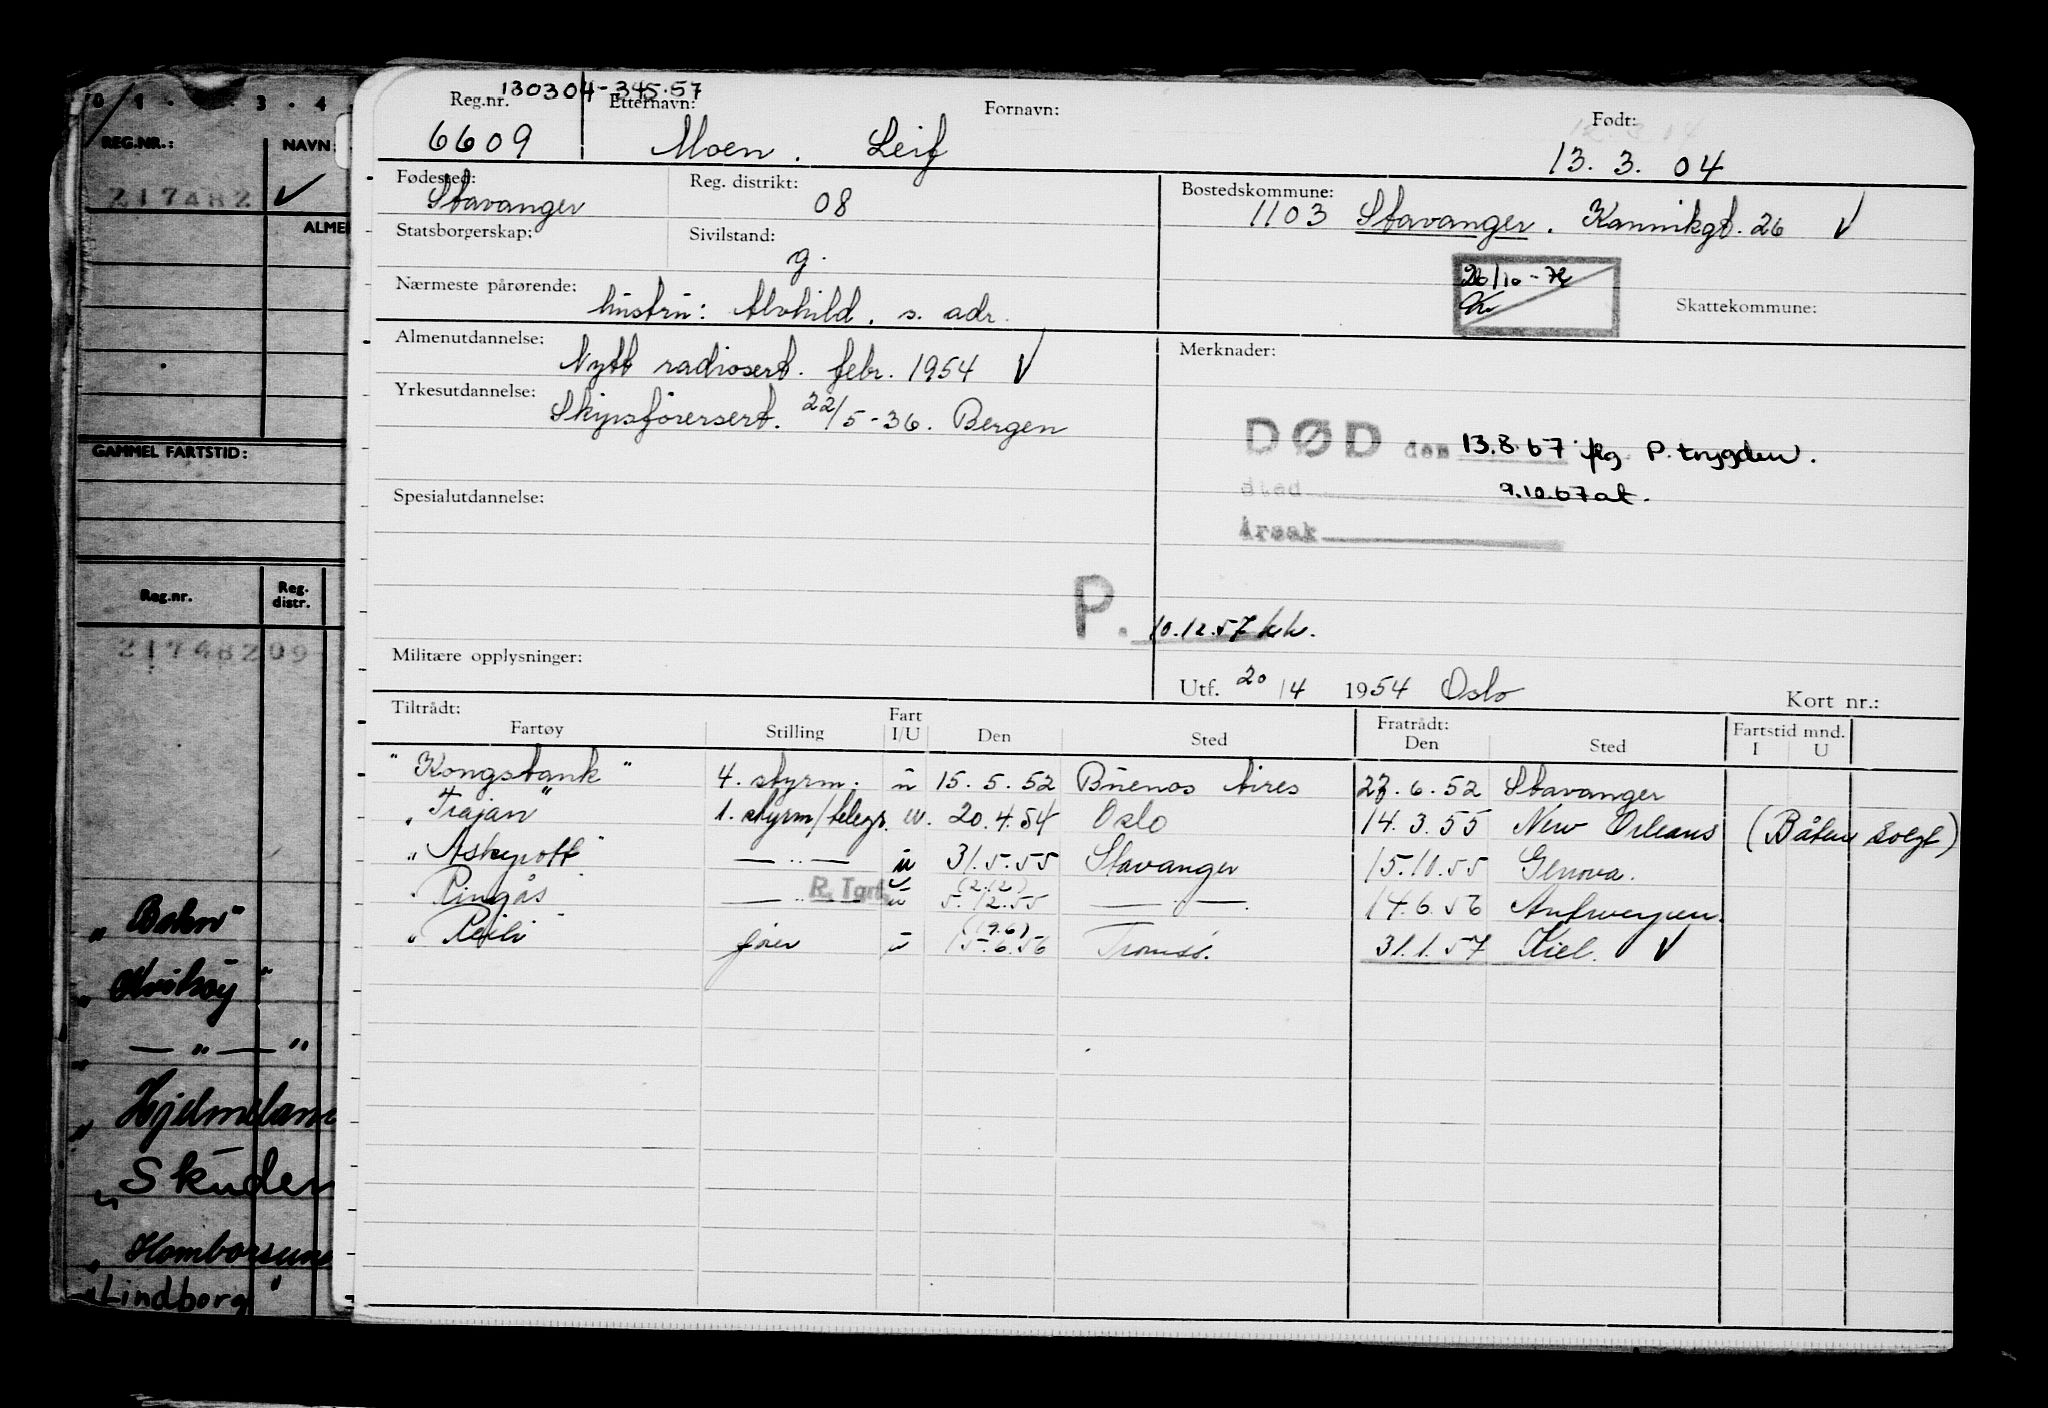 0 1 . 3 . 4
REG.NR.: NAVN:
217482 ✓
ALME
GAMMEL FARTSTID:
Reg.nr. Reg. distr.
21748209
„ Bokn"
„ Kvitsøy "
„ — „ — "
„ Hjelmelan
„ Skuden
„ Homborsun
"Lindborg"
130304-345.57
Reg.nr. Etternavn: Fornavn: Født:
6609 Moen. Leif 13. 3. 04
Fødested: Reg. distrikt: Bostedskommune:
Stavanger 08 1103 Stavanger. Kannikgt. 26 ✓
Statsborgerskap: Sivilstand:
g.
26/10-72
Skattekommune:
Nærmeste pårørende:
hustru: Alvhild. s. adr.
Almenutdannelse: Merknader:
Nytt radiosert. febr. 1954 ✓
Yrkesutdannelse:
Skipsførersert. 22/5-36. Bergen
DØD den 13.8.67 flg P. trygden.
Sted 9.10.67 at.
Årsak
Spesialutdannelse:
P. 10.12.57 kk.
Militære opplysninger:
Utf. 20/4 1954 Oslo Kort nr.:
Tiltrådt: Fratrådt:
Fartøy Stilling Fart I/U Den Sted Den Sted Fartstid mnd. I U
"Kongstank" 4. styrm. u 15. 5. 52 Buenos Aires 23. 6. 52 Stavanger
„Trajan" 1. styrm/telegr. u. 20. 4. 54 Oslo 14. 3. 55 New Orleans (Båten solgt)
„Askepott" — „ — u 31.5.55 Stavanger 15.10.55 Genova.
„Ringås" — „ — R. Tgrf. u (2.12) 5.12.55 — „ — 14.6.56 Antwerpen.
" fører u (9.6) 15.6.56 Tromsø. 31.1.57 Kiel. ✓